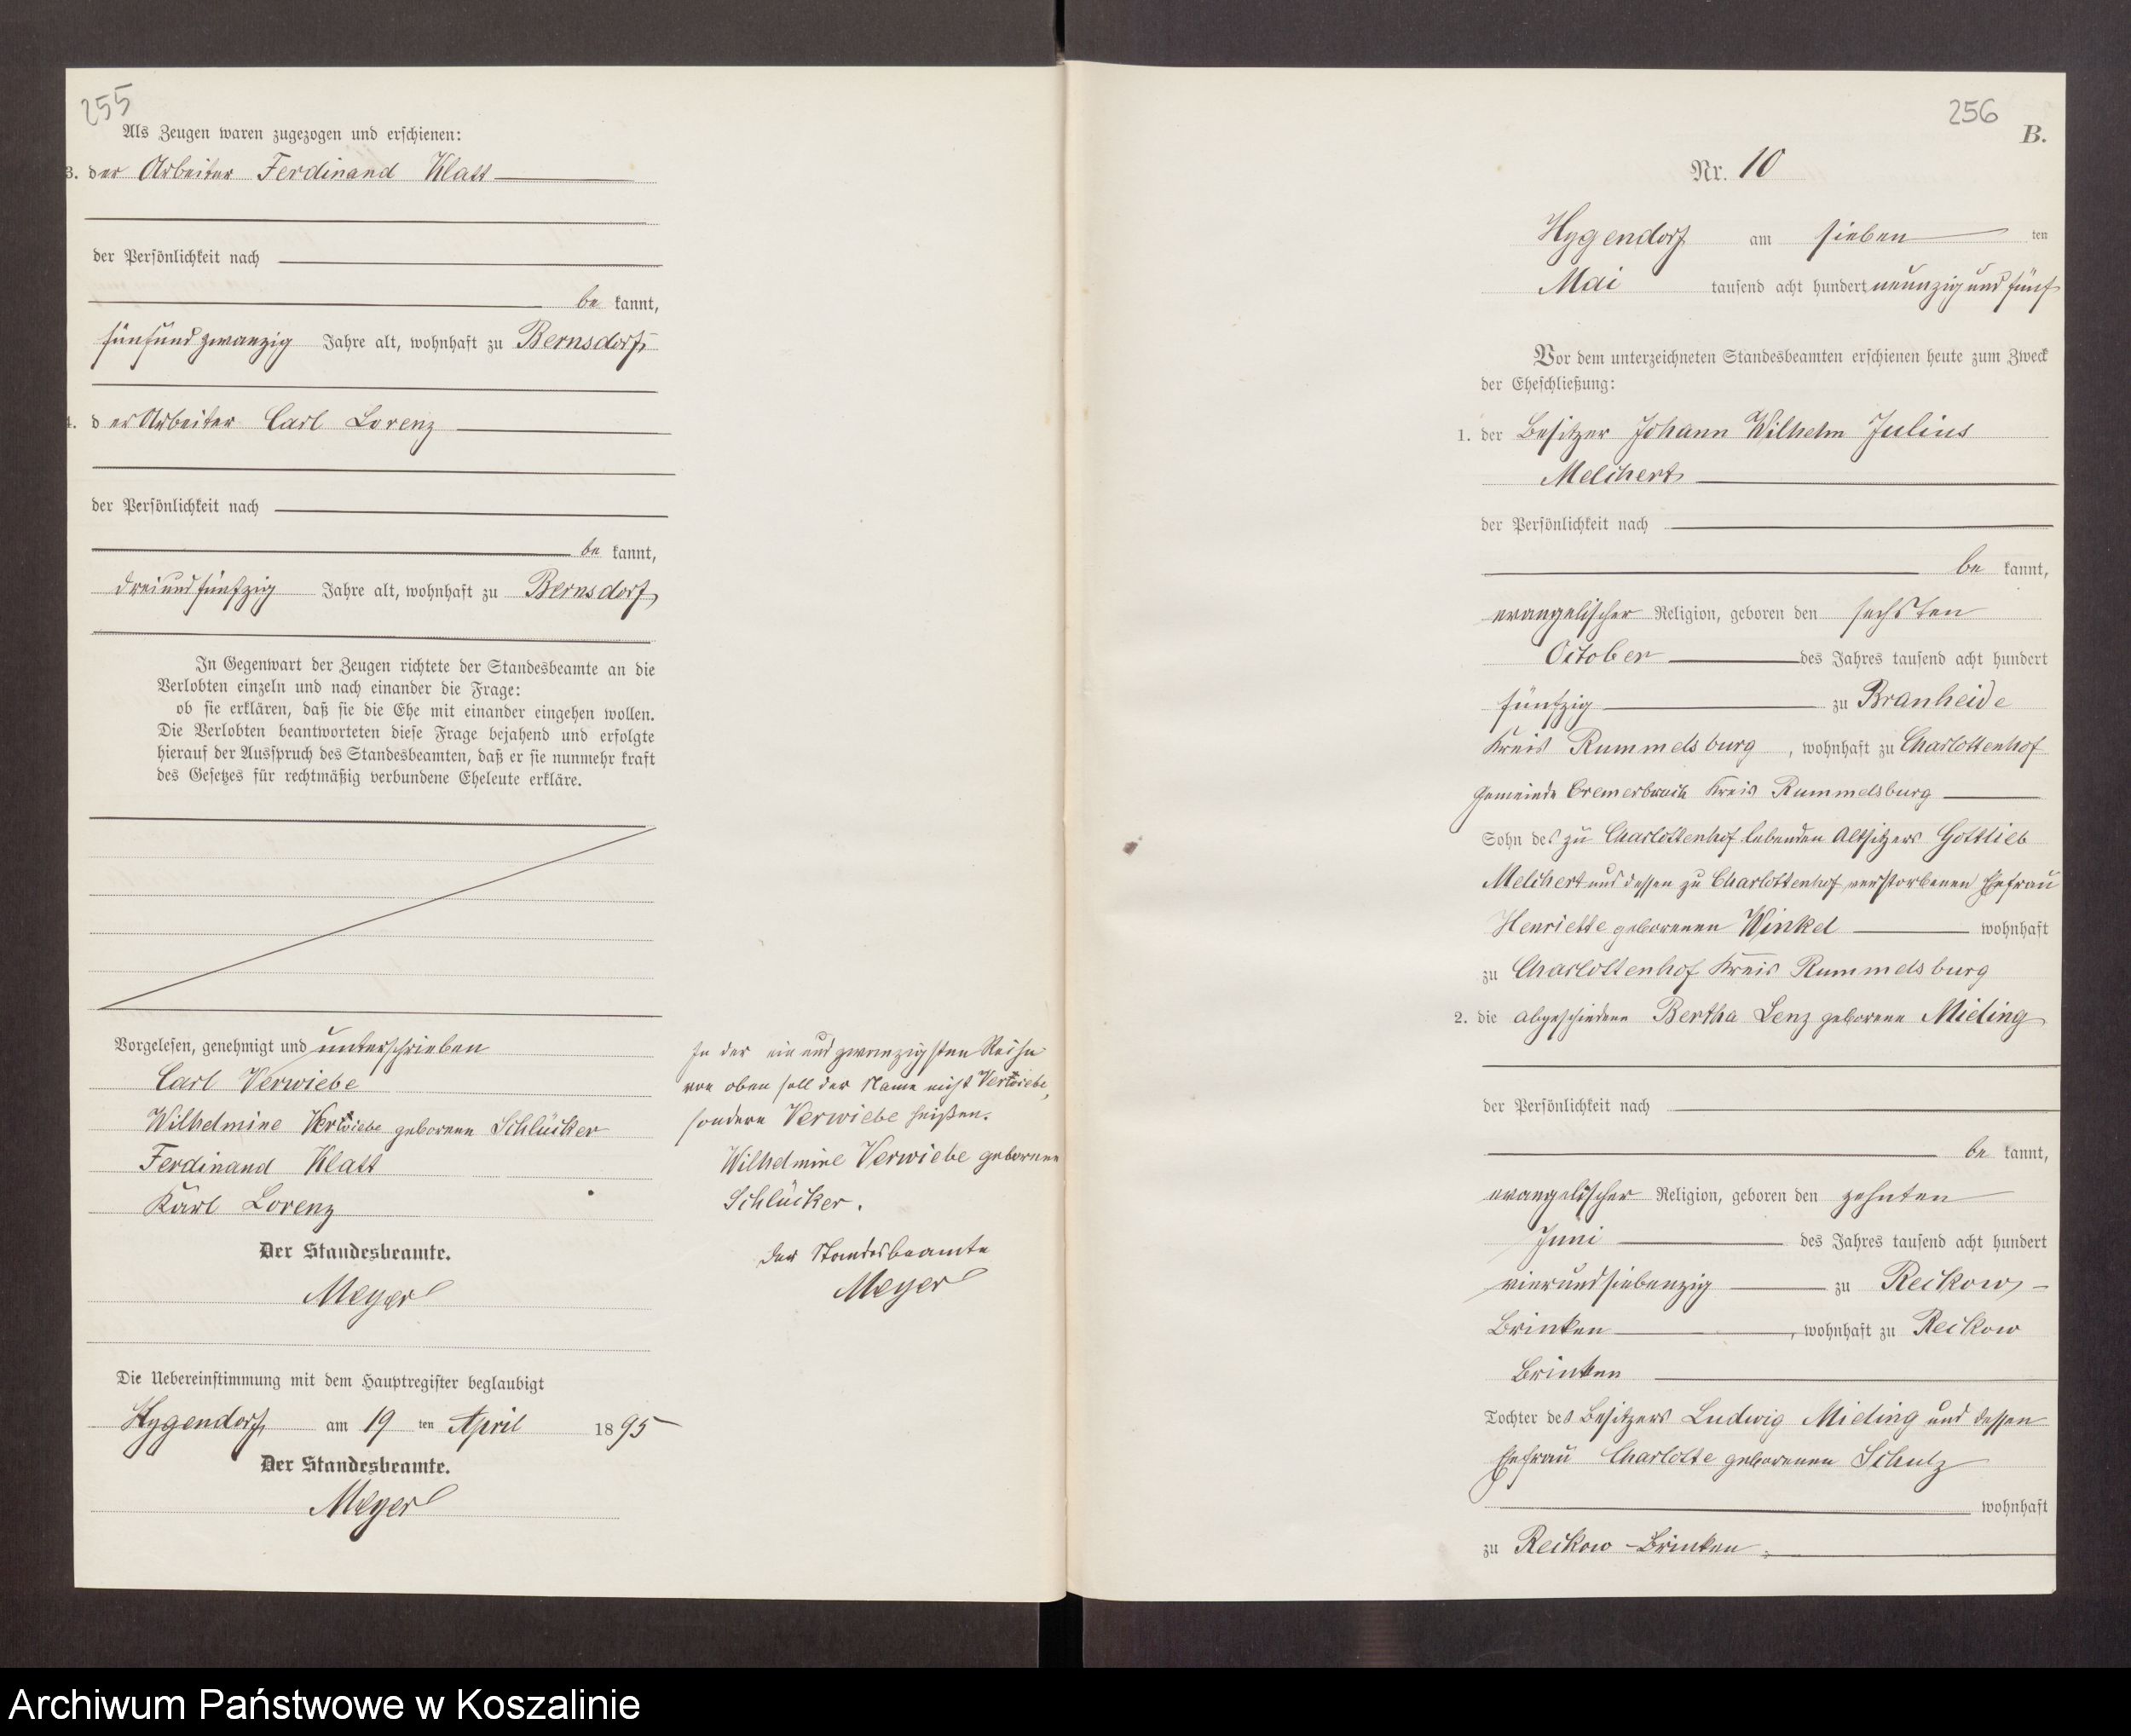 255
Als Zeugen waren zugezogen und erschienen:
3. der Arbeiter Ferdinand Klatt
der Persönlichkeit nach
be kannt,
fünfundzwanzig Jahre alt, wohnhaft zu Bernsdorf
4. der Arbeiter Carl Lorenz
der Persönlichkeit nach
be kannt,
dreiundfünfzig Jahre alt, wohnhaft zu Bernsdorf
In Gegenwart der Zeugen richtete der Standesbeamte an die
Verlobten einzeln und nach einander die Frage:
ob sie erklären, daß sie die Ehe mit einander eingehen wollen.
Die Verlobten beantworteten diese Frage bejahend und erfolgte
hierauf der Ausspruch des Standesbeamten, daß er sie nunmehr kraft
des Gesetzes für rechtmäßig verbundene Eheleute erkläre.
Vorgelesen, genehmigt und unterschrieben
Carl Verwiebe
Wilhelmine geborene Schlücker
Ferdinand Klatt
Karl Lorenz
Der Standesbeamte.
Meyer
Die Uebereinstimmung mit dem Hauptregister beglaubigt
Hygendorf am 19 ten April 1895
Der Standesbeamte.
Meyer
In der ein und zwanzigsten Reihe
von oben soll der Name nicht
sondern Verwiebe heißen.
Wilhelmine Verwiebe geborene
Schlücker.
Der Standesbeamte
Meyer
256
B.
Nr. 10
Hygendorf am sieben ten
Mai tausend acht hundert neunzig und fünf
Vor dem unterzeichneten Standesbeamten erschienen heute zum Zweck
der Eheschließung:
1. der Besitzer Johann Wilhelm Julius
Melchert
der Persönlichkeit nach
be kannt,
evangelischer Religion, geboren den sechsten
October des Jahres tausend acht hundert
fünfzig zu Branheide
Kreis Rummelsburg, wohnhaft zu Charlottenhof
Gemeinde Cremerbruch Kreis Rummelsburg
Sohn des zu Charlottenhof lebenden Altsitzers Gottlieb
Melchert und dessen zu Charlottenhof verstorbenen Ehefrau
Henriette geborenen Winkel wohnhaft
zu Charlottenhof Kreis Rummelsburg
2. die abgeschiedene Bertha Lenz geborene Mieling
der Persönlichkeit nach
be kannt,
evangelischer Religion, geboren den zehnten
Juni des Jahres tausend acht hundert
vierundsiebenzig zu Reckow-
Brinken, wohnhaft zu Reckow
Brinken
Tochter des Besitzers Ludwig Mieling und dessen
Ehefrau Charlotte geborenen Schulz
wohnhaft
zu Reckow-Brinken.
Archiwum Państwowe w Koszalinie